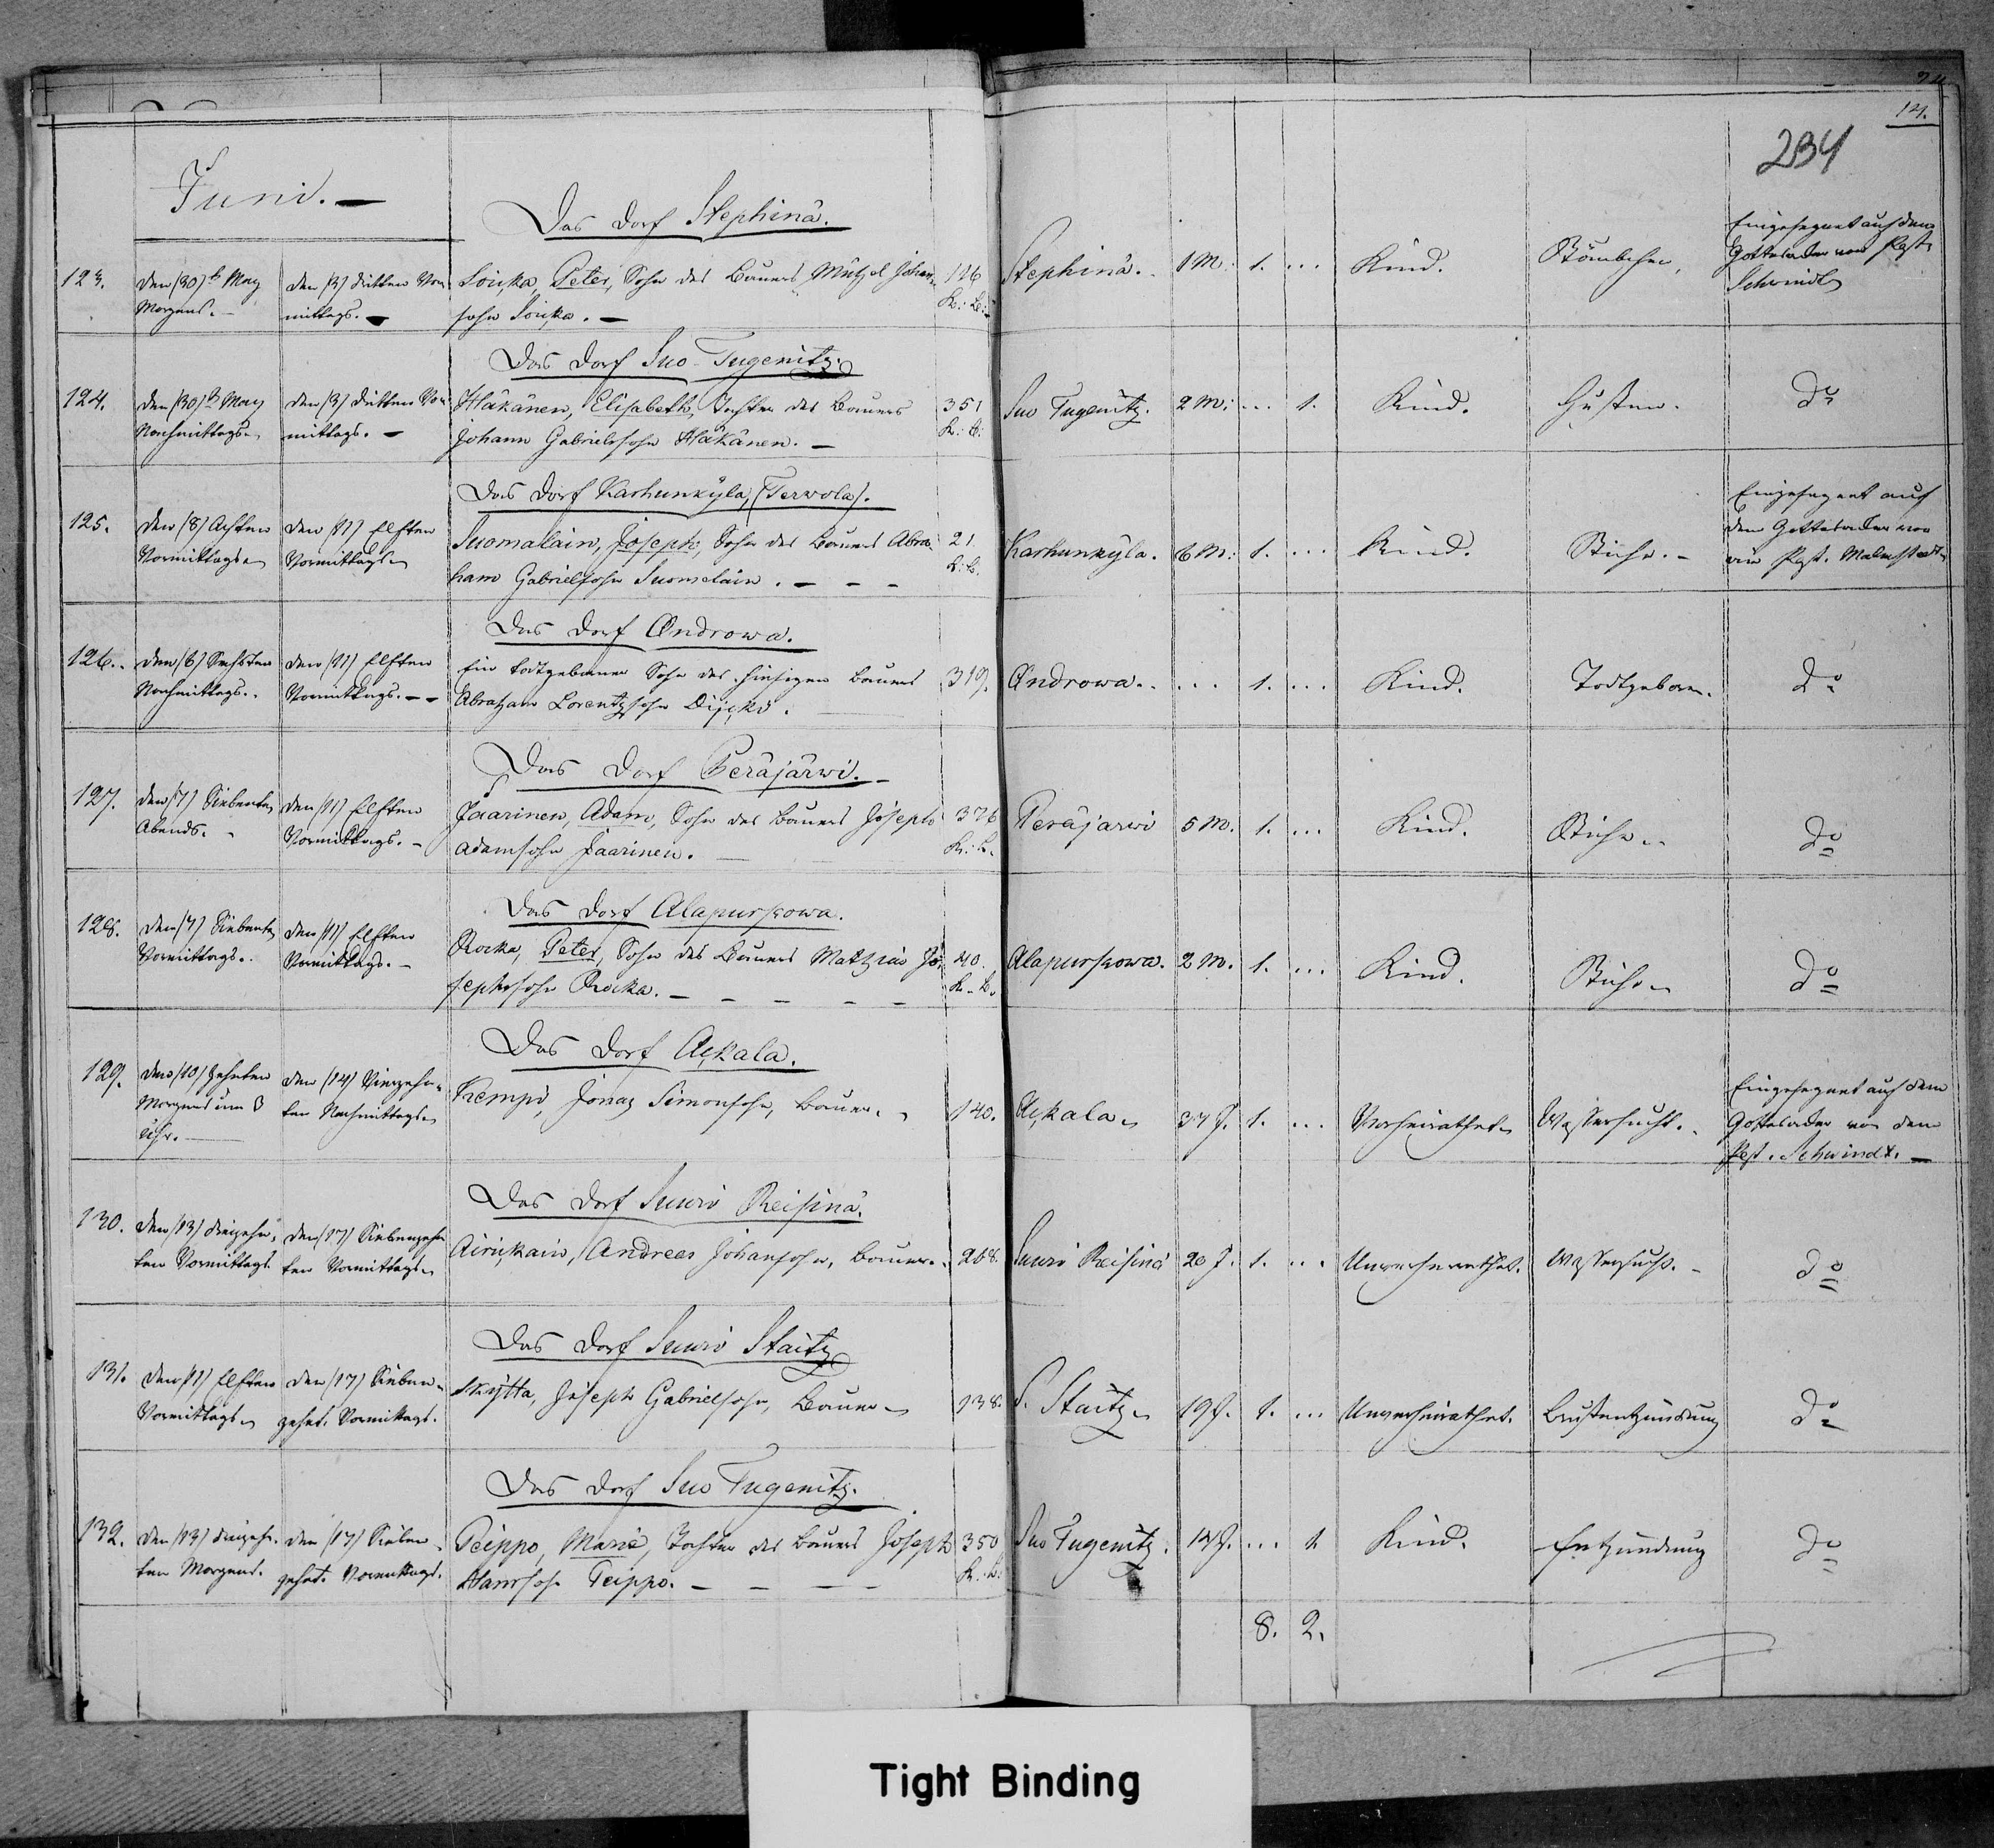 24
14.
234
Juni. —
Das Dorf Stephinä.
123. den (30)t May Morgens. — den (3) dritten Vormittags. — Louka, Peter, Sohn des Bauers Johansohn Louka. — 116 K: B: Stephinä. 1 M. 1. ... Kind. Eingesegnet auf dem Gottesacker von Past. Schwindt
Das Dorf Suo-Tugenitz.
124. den (30)t May Nachmittags den (3) dritten Vormittags. — Häkänen, Elisabeth, Tochter des Bauers Johann Gabrielssohn Häkänen. — 351 K: B: Suo Tugenitz. 2 M: ... 1. Kind. Husten. do
Das Dorf Karhunkÿla, (Terwola).
125. den (8) Achten Vormittags den (11) Elften Vormittags Suomalain, Joseph, Sohn des Bauers Abraham Gabrielsohn Suomelain. — — — 21. K: B. Karhunkÿla. 6 M: 1. ... Kind. Eingesegnet auf dem Gottesacker von Past. Malmstedt
Das Dorf Androwa.
126. den (6) Sechsten Nachmittags. den (11) Elften Vormittags. — — Ein todtgeborner Sohn des hiesigen Bauers Abraham Lorentzsohn 319. Androwa. ... 1. ... Kind. Todtgeboren. do
Das Dorf Peräjärwi. —
127. den (7) Siebenten Abends. den (11) Elften Vormittags. — Jaarinen, Adam, Sohn des Bauers Joseph Adamsohn Jaarinen. 376 K: B. Peräjarwi 5 M. 1. ... Kind. do
Das Dorf Alapurskowa.
128. den (7) Siebenten Vormittags. den (11) Elften Vormittags. — Rocka, Peter, Sohn des Bauers Mathias Josephsohn Rocka. — — — — — 40. K. B. Alapurskowa. 2 M. 1. ... Kind. do
Das Dorf Ackala.
129. den (10) Zehnten Morgens um 3 Uhr. — den (14) Vierzehnten Nachmittags Kemppi, Jonas Simonsohn, Bauer. 140. Ackala 37 J. 1. ... Verheirathet Wassersucht. Eingesegnet auf dem Gottesacker von dem Past. Schwindt. —
Das Dorf Suuri Reisinä.
130. den (13) dreizehnten Vormittags den (17) Siebenzehnten Vormittags Airickain, Andreas Johansohn, Bauer. 268. Suuri Reisinä 20 J. 1. ... Unverheirathet. Wassersucht. — do
Das Dorf Suuri Staitz
131. den (11) Elften Vormittags den (17) Siebenzehnt. Vormittags. Skÿtta, Joseph Gabrielsohn, Bauer 138. S. Staitz 19 J. 1. ... Unverheirathet. Brustentzündung do
Das Dorf Suo Tugenitz.
132. den (13) dreizehnten Morgens. den (17) Siebenzehnt. Vormittags. Peippo, Marie, Tochter des Bauers Joseph Hanssohn Peippo. — — — — 350 K. B. Suo Tugenitz. ... 1 Kind. Entzündung do
8. 2.
Tight Binding